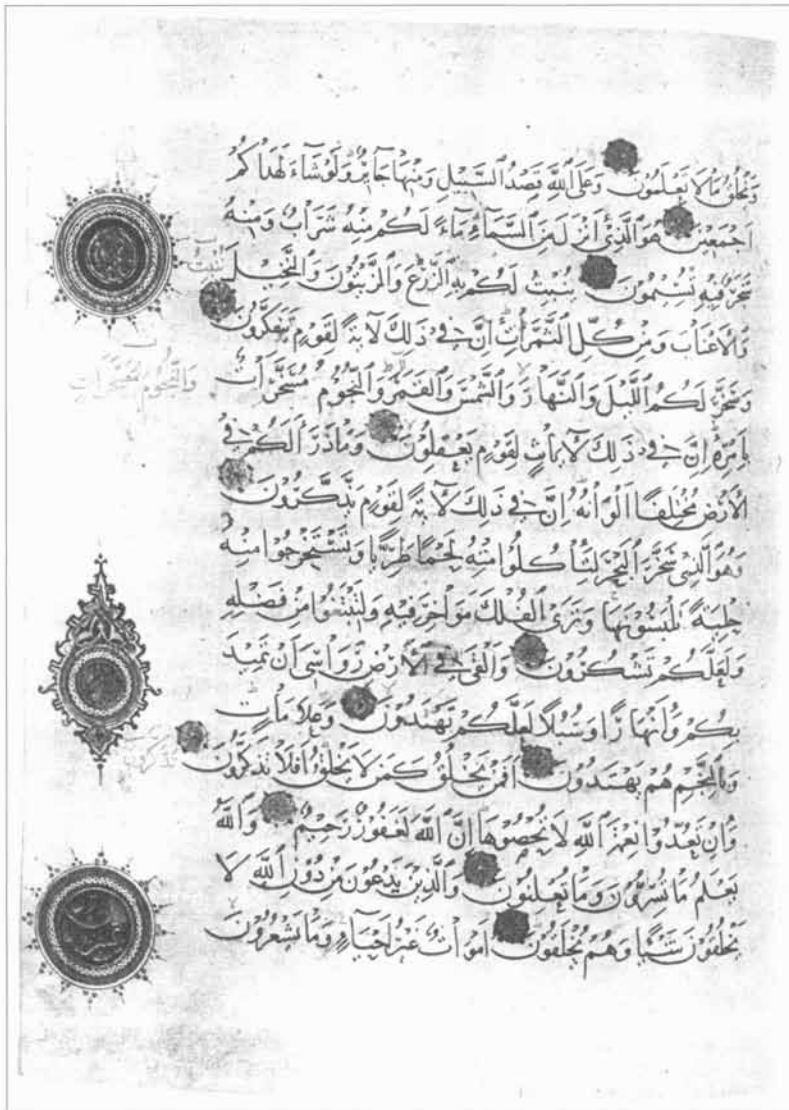 وَيَخْلُقُ مَا لَا تَعْلَمُونَ وَعَلَى اللَّهِ قَصْدُ السَّبِيلِ وَمِنْهَا جَائِرٌ وَلَوْ شَاءَ لَهَدَاكُمْ
أَجْمَعِينَ هُوَ الَّذِي أَنْزَلَ مِنَ السَّمَاءِ مَاءً لَكُمْ مِنْهُ شَرَابٌ وَمِنْهُ
شَجَرٌ فِيهِ تُسِيمُونَ يُنْبِتُ لَكُمْ بِهِ الزَّرْعَ وَالزَّيْتُونَ وَالنَّخِيلَ
وَالْأَعْنَابَ وَمِنْ كُلِّ الثَّمَرَاتِ إِنَّ فِي ذَلِكَ لَآيَةً لِقَوْمٍ يَتَفَكَّرُونَ
وَسَخَّرَ لَكُمُ اللَّيْلَ وَالنَّهَارَ وَالشَّمْسَ وَالْقَمَرَ وَالنُّجُومَ مُسَخَّرَاتٍ
بِأَمْرِهِ إِنَّ فِي ذَلِكَ لَآيَاتٍ لِقَوْمٍ يَعْقِلُونَ وَمَا ذَرَأَ لَكُمْ فِي
الْأَرْضِ مُخْتَلِفًا أَلْوَانُهُ إِنَّ فِي ذَلِكَ لَآيَةً لِقَوْمٍ يَذَّكَّرُونَ
وَهُوَ الَّذِي سَخَّرَ الْبَحْرَ لِتَأْكُلُوا مِنْهُ لَحْمًا طَرِيًّا وَتَسْتَخْرِجُوا مِنْهُ
حِلْيَةً تَلْبَسُونَهَا وَتَرَى الْفُلْكَ مَوَاخِرَ فِيهِ وَلِتَبْتَغُوا مِنْ فَضْلِهِ
وَلَعَلَّكُمْ تَشْكُرُونَ وَأَلْقَى فِي الْأَرْضِ رَوَاسِيَ أَنْ تَمِيدَ
بِكُمْ وَأَنْهَارًا وَسُبُلًا لَعَلَّكُمْ تَهْتَدُونَ وَعَلَامَاتٍ
وَبِالنَّجْمِ هُمْ يَهْتَدُونَ أَفَمَنْ يَخْلُقُ كَمَنْ لَا يَخْلُقُ أَفَلَا تَذَكَّرُونَ
وَإِنْ تَعُدُّوا نِعْمَةَ اللَّهِ لَا تُحْصُوهَا إِنَّ اللَّهَ لَغَفُورٌ رَحِيمٌ وَاللَّهُ
يَعْلَمُ مَا تُسِرُّونَ وَمَا تُعْلِنُونَ وَالَّذِينَ يَدْعُونَ مِنْ دُونِ اللَّهِ لَا
يَخْلُقُونَ شَيْئًا وَهُمْ يُخْلَقُونَ أَمْوَاتٌ غَيْرُ أَحْيَاءٍ وَمَا يَشْعُرُونَ
وَالنُّجُومُ مُسَخَّرَاتٌ